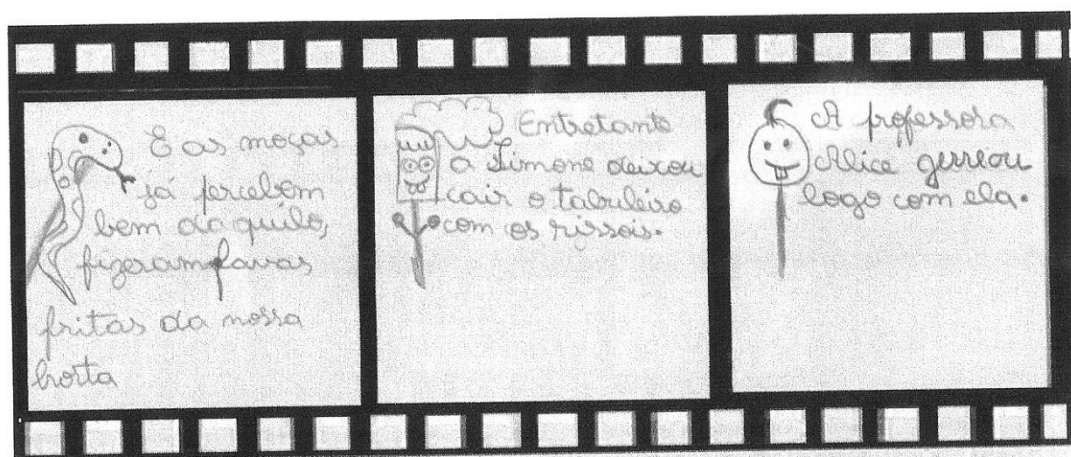 E as moças
já percebem
bem daquilo,
fizeram favas
fritas da nossa
horta
Entretanto
a Simone deixou
cair o tabuleiro
com os rissois.
A professora
Alice gerreou
logo com ela.